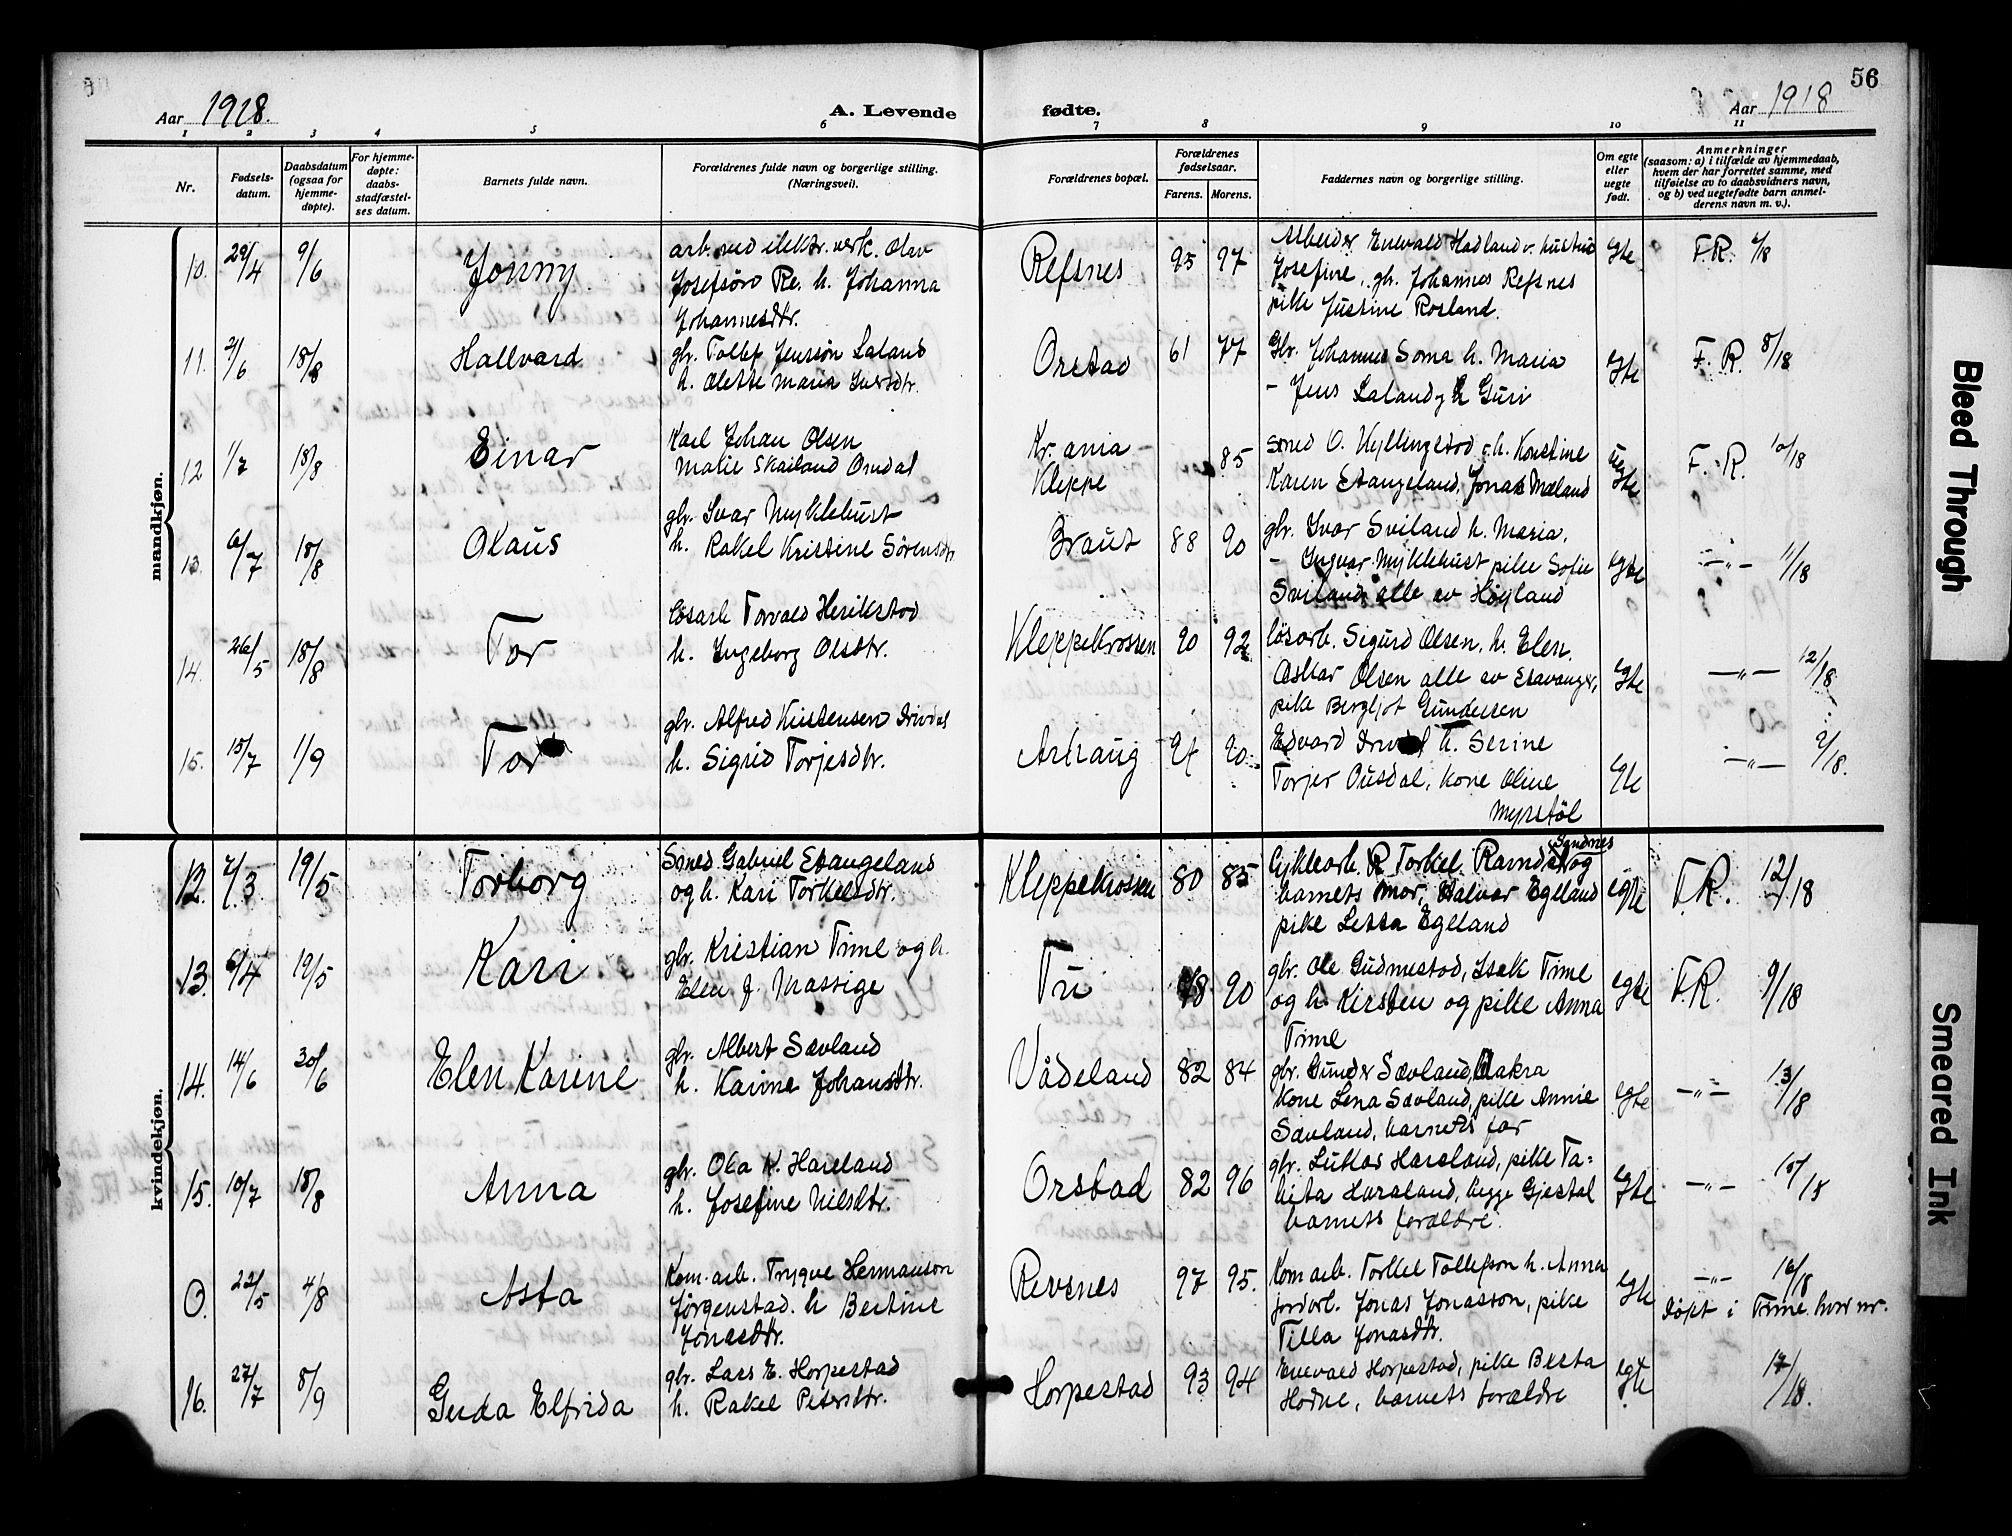 56
Aar 1918.
A. Levende fødte.
Aar 1918
1 2 3 4 5 6 7 8 9 10 11
Nr.
Fødselsdatum.
Daabsdatum (ogsaa for hjemmedøpte).
For hjemmedøpte: daabsstadfæstelses datum.
Barnets fulde navn.
Forældrenes fulde navn og borgerlige stilling. (Næringsvei).
Forældrenes bopæl.
Forældrenes fødselsaar.
Farens. Morens.
Faddernes navn og borgerlige stilling.
Om egte eller uegte født.
Anmerkninger (saasom: a) i tilfælde av hjemmedaab, hvem der har forrettet samme, med tilføielse av to daabsvidners navn, og b) ved uegtefødte barn anmelderens navn m. v.).
mandkjøn.
10. 29/4 9/6 Jonny
arb. ved elektr. verk. Olav
Josefsøn Re. h. Johanna
Johannesdtr.
Refsnes 95 97
Arbeider Enevald Hadland v. hustru
Josefine, gb. Johannes Refsnes
pike Justine Rosland.
egte F.R. 6/18
11. 2/6 18/8 Hallvard
gbr. Tollef Jenssøn Laland
h. Olette Maria Iversdtr.
Orstad 61 77
Gbr. Johannes Soma h. Maria
- Jens Laland og h Guri
egte F. R. 8/18
12 1/7 18/8 Einar
Karl Johan Olsen
Malie Skailand Omdal
Kr. ania
Kleppe 85
smed O. Hyllingstad o.h. Konstine
Karen Stangeland, Jonas Mæland
uegte F. R. 10/18
13. 6/7 18/8 Olaus
gbr. Ivar Myklebust
h. Rakel Kristine Sörensdtr.
Braut 88 90
gbr. Ivar Sviland h. Maria,
- Ingvar Myklebust pike Sofie
Sviland alle av Høyland
egte -"- 11/18
14. 26/5 18/8 Tor
løsarb Torvald Herikstad
h. Ingeborg Olsdtr.
Kleppekrossen 90 92
løsarb. Sigurd Olsen, h. Elen.
Oskar Olsen alle av Stavanger,
pike Bergljot Gundersen
egte -"- 12/18
15. 15/7 1/9 Tor
gbr. Alfred Kristensen Drivdal
h. Sigrid Torjesdtr.
Arhaug 94 90.
Edvard Drivdal h. Serine
Torjer Ousdal, kone Oline
Myrstøl
egte -"- 9/18.
kvindekjøn.
12. 7/3 19/5 Torborg
Smed Gabriel Stangeland
og h. Kari Torkelsdtr.
Kleppekrossen 80 85
Cyklearb. R Torkel Ramdal og
Sandnes
barnets mor, Halvar Egeland
pike Letta Egeland
egte F.R. 12/18
13. 6/4 19/5 Kari
gbr. Kristian Time og h.
Elen J. Mossige
Tu 90
gbr. Ole Gudmestad, Isak Time
og h. Kirsten og pike Anna
Time
egte F.R. 9/18
14. 14/6 30/6 Elen Karine
gbr. Albert Sævland
h. Karine Johansdtr.
Vådeland 82 84
gbr. Gunder Sævland, Aakra
kone Lena Sævland, pike Annie
Sævland, barnets far
egte -"- 13/18
15. 10/7 18/8 Anna
gbr. Ola K. Hareland
h. Josefine Nilsdtr.
Orstad 82 96
gbr. Lukas Hareland, pike Ta=
bita Hareland, begge Gjestal
barnets forældre.
egte -"- 15/18
0. 22/5 4/8 Asta
Kom. arb. Trygve Hermanson
Jørgenstad. h Bertine
Jonasdtr.
Revsnes 97 95.
Kom arb. Torkel Tollefson h. Anna
jordarb. Jonas Jonasson, pike
Tilla Jonasdtr.
egte -"- 16/18
døpt i Time hvor nr.
16. 27/7 8/9 Guda Elfrida
gbr. Lars E. Horpestad
h. Rakel Petersdtr.
Horpestad 93 94
Enevald Horpestad, pike Berta
Hodne, barnets forældre
egte 17/18.
Bleed Through
Smeared Ink